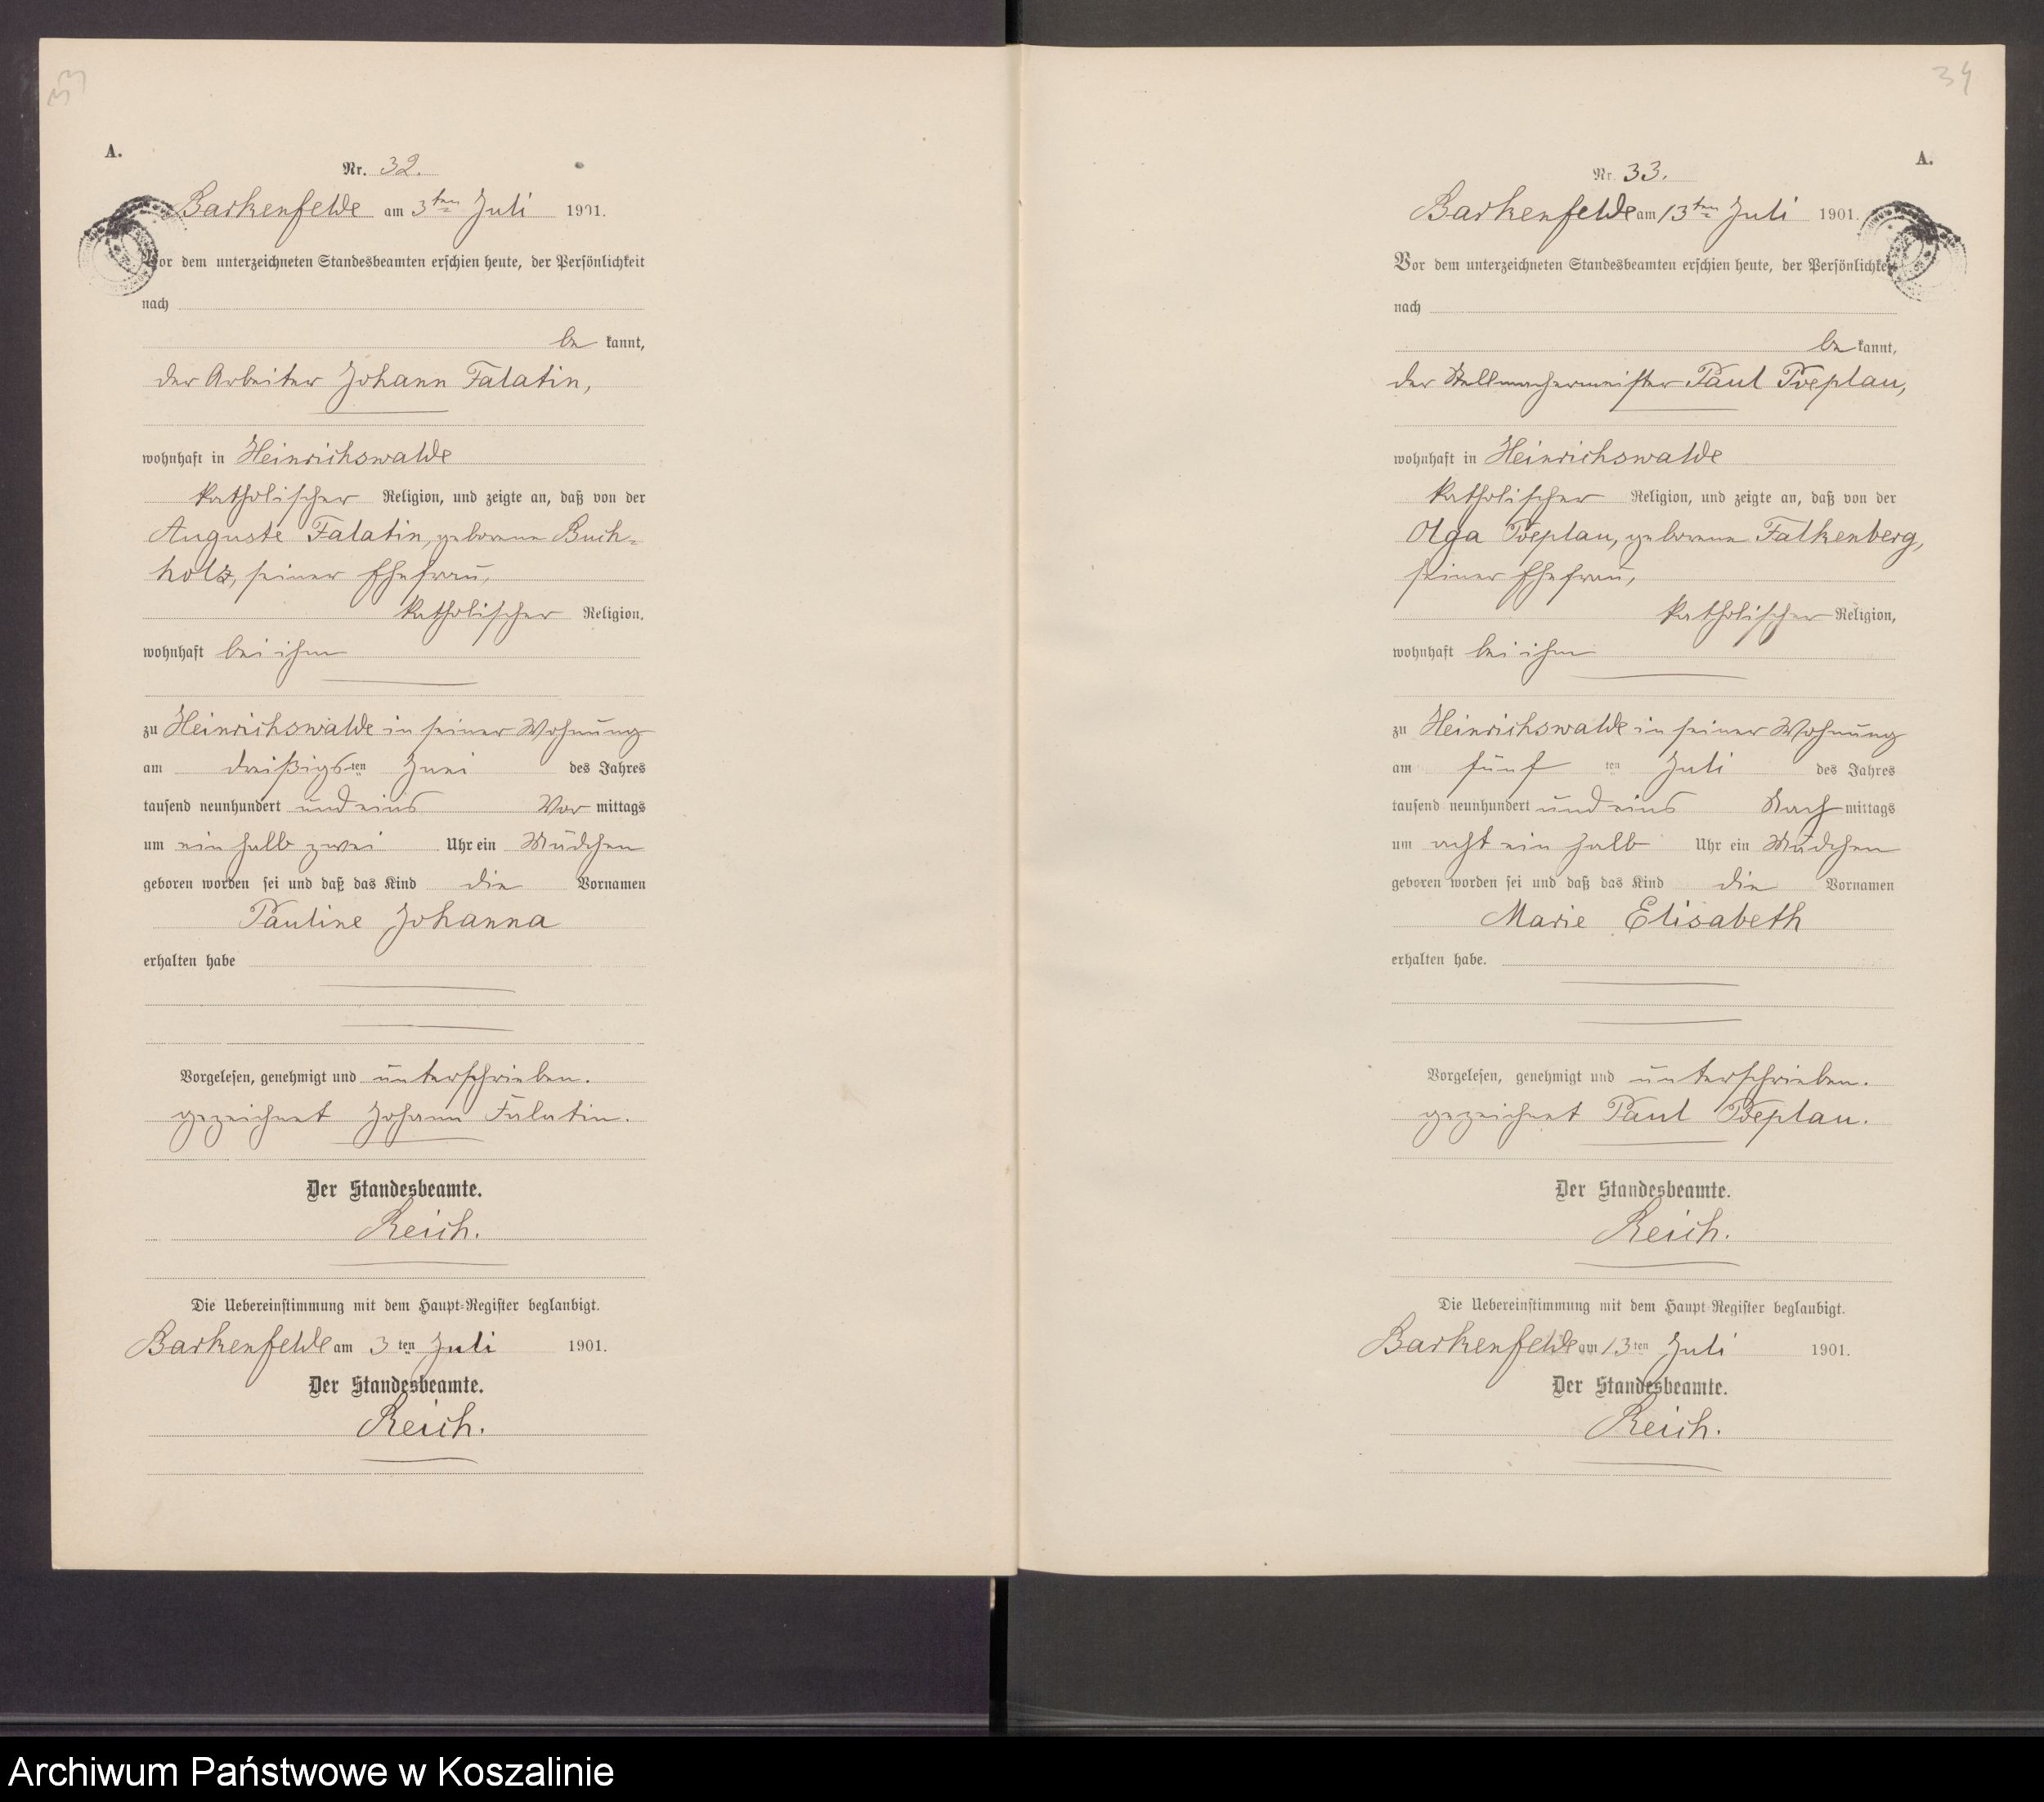 33
A.
Nr. 32.
Barkenfelde am 3ten Juli 1901.
Vor dem unterzeichneten Standesbeamten erschien heute, der Persönlichkeit
nach
be kannt,
der Arbeiter Johann Falatin,
wohnhaft in Heinrichswalde
katholischer Religion, und zeigte an, daß von der
Auguste Falatin, geborene Buch-
holz, seiner Ehefrau,
katholischer Religion,
wohnhaft bei ihm
zu Heinrichswalde in seiner Wohnung
am dreißigsten Juni des Jahres
tausend neunhundert und eins Vor mittags
um ein halb zwei Uhr ein Mädchen
geboren worden sei und daß das Kind die Vornamen
Pauline Johanna
erhalten habe
Vorgelesen, genehmigt und unterschrieben.
gezeichnet Johann Falatin.
Der Standesbeamte.
Reich.
Die Uebereinstimmung mit dem Haupt-Register beglaubigt.
Barkenfelde am 3 ten Juli 1901.
Der Standesbeamte.
Reich.
34
A.
Nr. 33.
Barkenfelde am 13ten Juli 1901.
Vor dem unterzeichneten Standesbeamten erschien heute, der Persönlichkeit
nach
be kannt,
der Stellmachermeister Paul Poeplau,
wohnhaft in Heinrichswalde
katholischer Religion, und zeigte an, daß von der
Olga Poeplau, geborene Falkenberg,
seiner Ehefrau,
katholischer Religion,
wohnhaft bei ihm
zu Heinrichswalde in seiner Wohnung
am fünf ten Juli des Jahres
tausend neunhundert und eins Nach mittags
um acht ein halb Uhr ein Mädchen
geboren worden sei und daß das Kind die Vornamen
Marie Elisabeth
erhalten habe.
Vorgelesen, genehmigt und unterschrieben.
gezeichnet Paul Poeplau.
Der Standesbeamte.
Reich.
Die Uebereinstimmung mit dem Haupt-Register beglaubigt.
Barkenfelde am 13 ten Juli 1901.
Der Standesbeamte.
Reich.
Archiwum Państwowe w Koszalinie